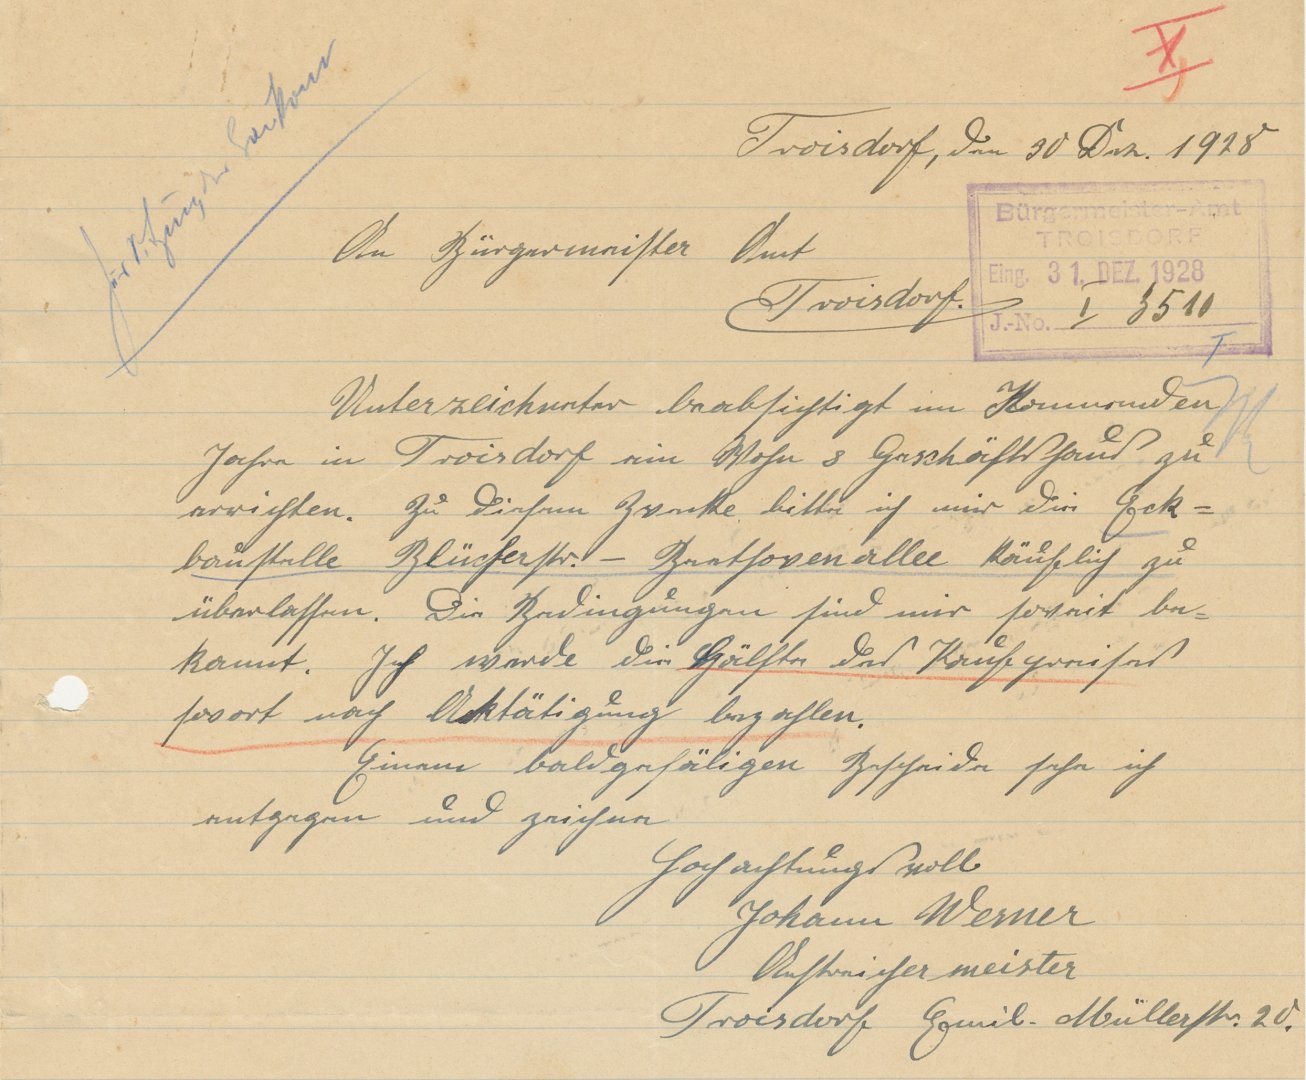 X
Troisdorf, den 30 Dez. 1928
Bürgermeister-Amt
TROISDORF
Eing. 31. DEZ. 1928
J.-No. I 3510
An Bürgermeister Amt
Troisdorf.
Unterzeichneter beabsichtigt im Kommenden
Jahre in Troisdorf ein Wohn & Geschäftshaus zu
errichten. Zu diesem Zwecke bitte ich mir die Eck=
baustelle Blücherstr. – Beethovenallee käuflich zu
überlassen. Die Bedingungen sind mir soweit be-
kannt. Ich werde die Hälfte des Kaufpreises
sovort nach Aktätigung bezahlen.
Einem baldgefäligen Bescheide sehe ich
entgegen und zeichne
Hochachtungsvoll
Johann Werner
Anstreichermeister
Troisdorf Emil-Müllerstr. 20.